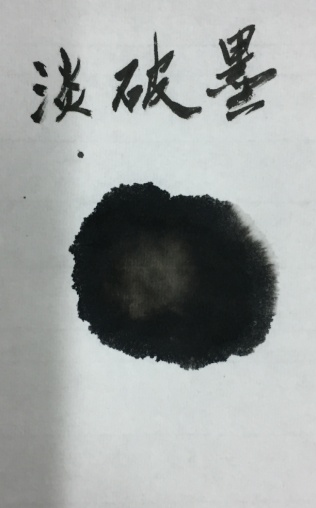 淡破墨